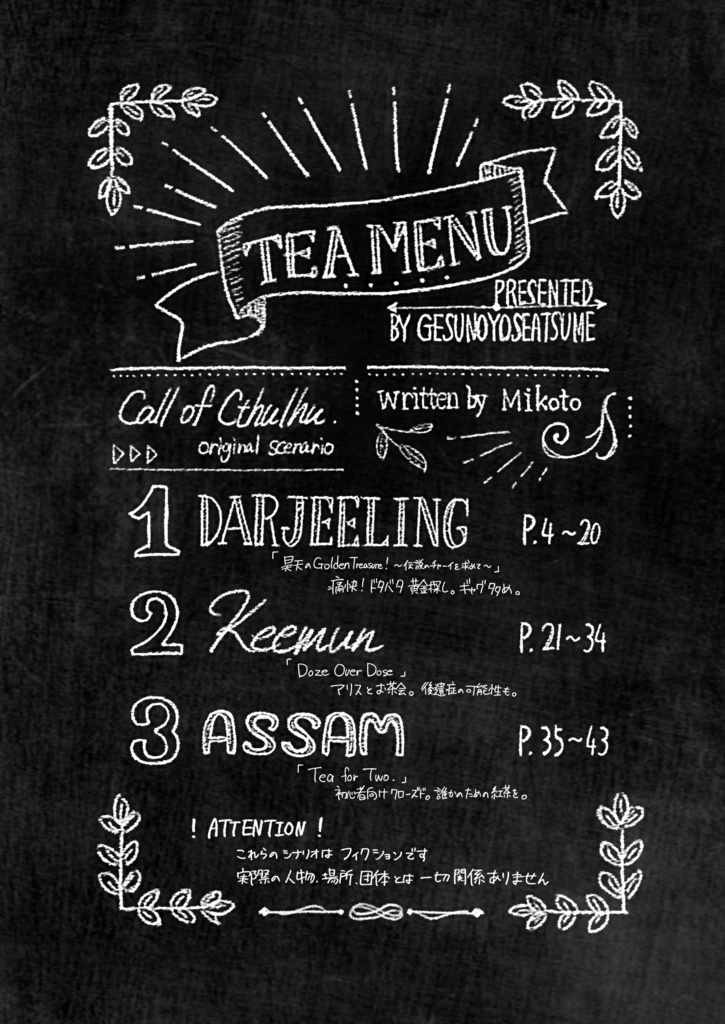 TEA MENU
PRESENTED
BY GESUNOYOSEATSUME
Call of Cthulhu.
original scenario
written by Mikoto
1 DARJEELING P.4~20
「昊天のGolden Treasure! ~伝説のチャーイを求めて~」
痛快!ドタバタ黄金探し。ギャグ多め。
2 Keemun P.21~34
「Doze Over Dose」
アリスとお茶会。後遺症の可能性も。
3 ASSAM P.35~43
「Tea for Two.」
初心者向けクローズド。誰かのための紅茶を。
! ATTENTION !
これらのシナリオは フィクションです
実際の人物、場所、団体とは一切関係ありません